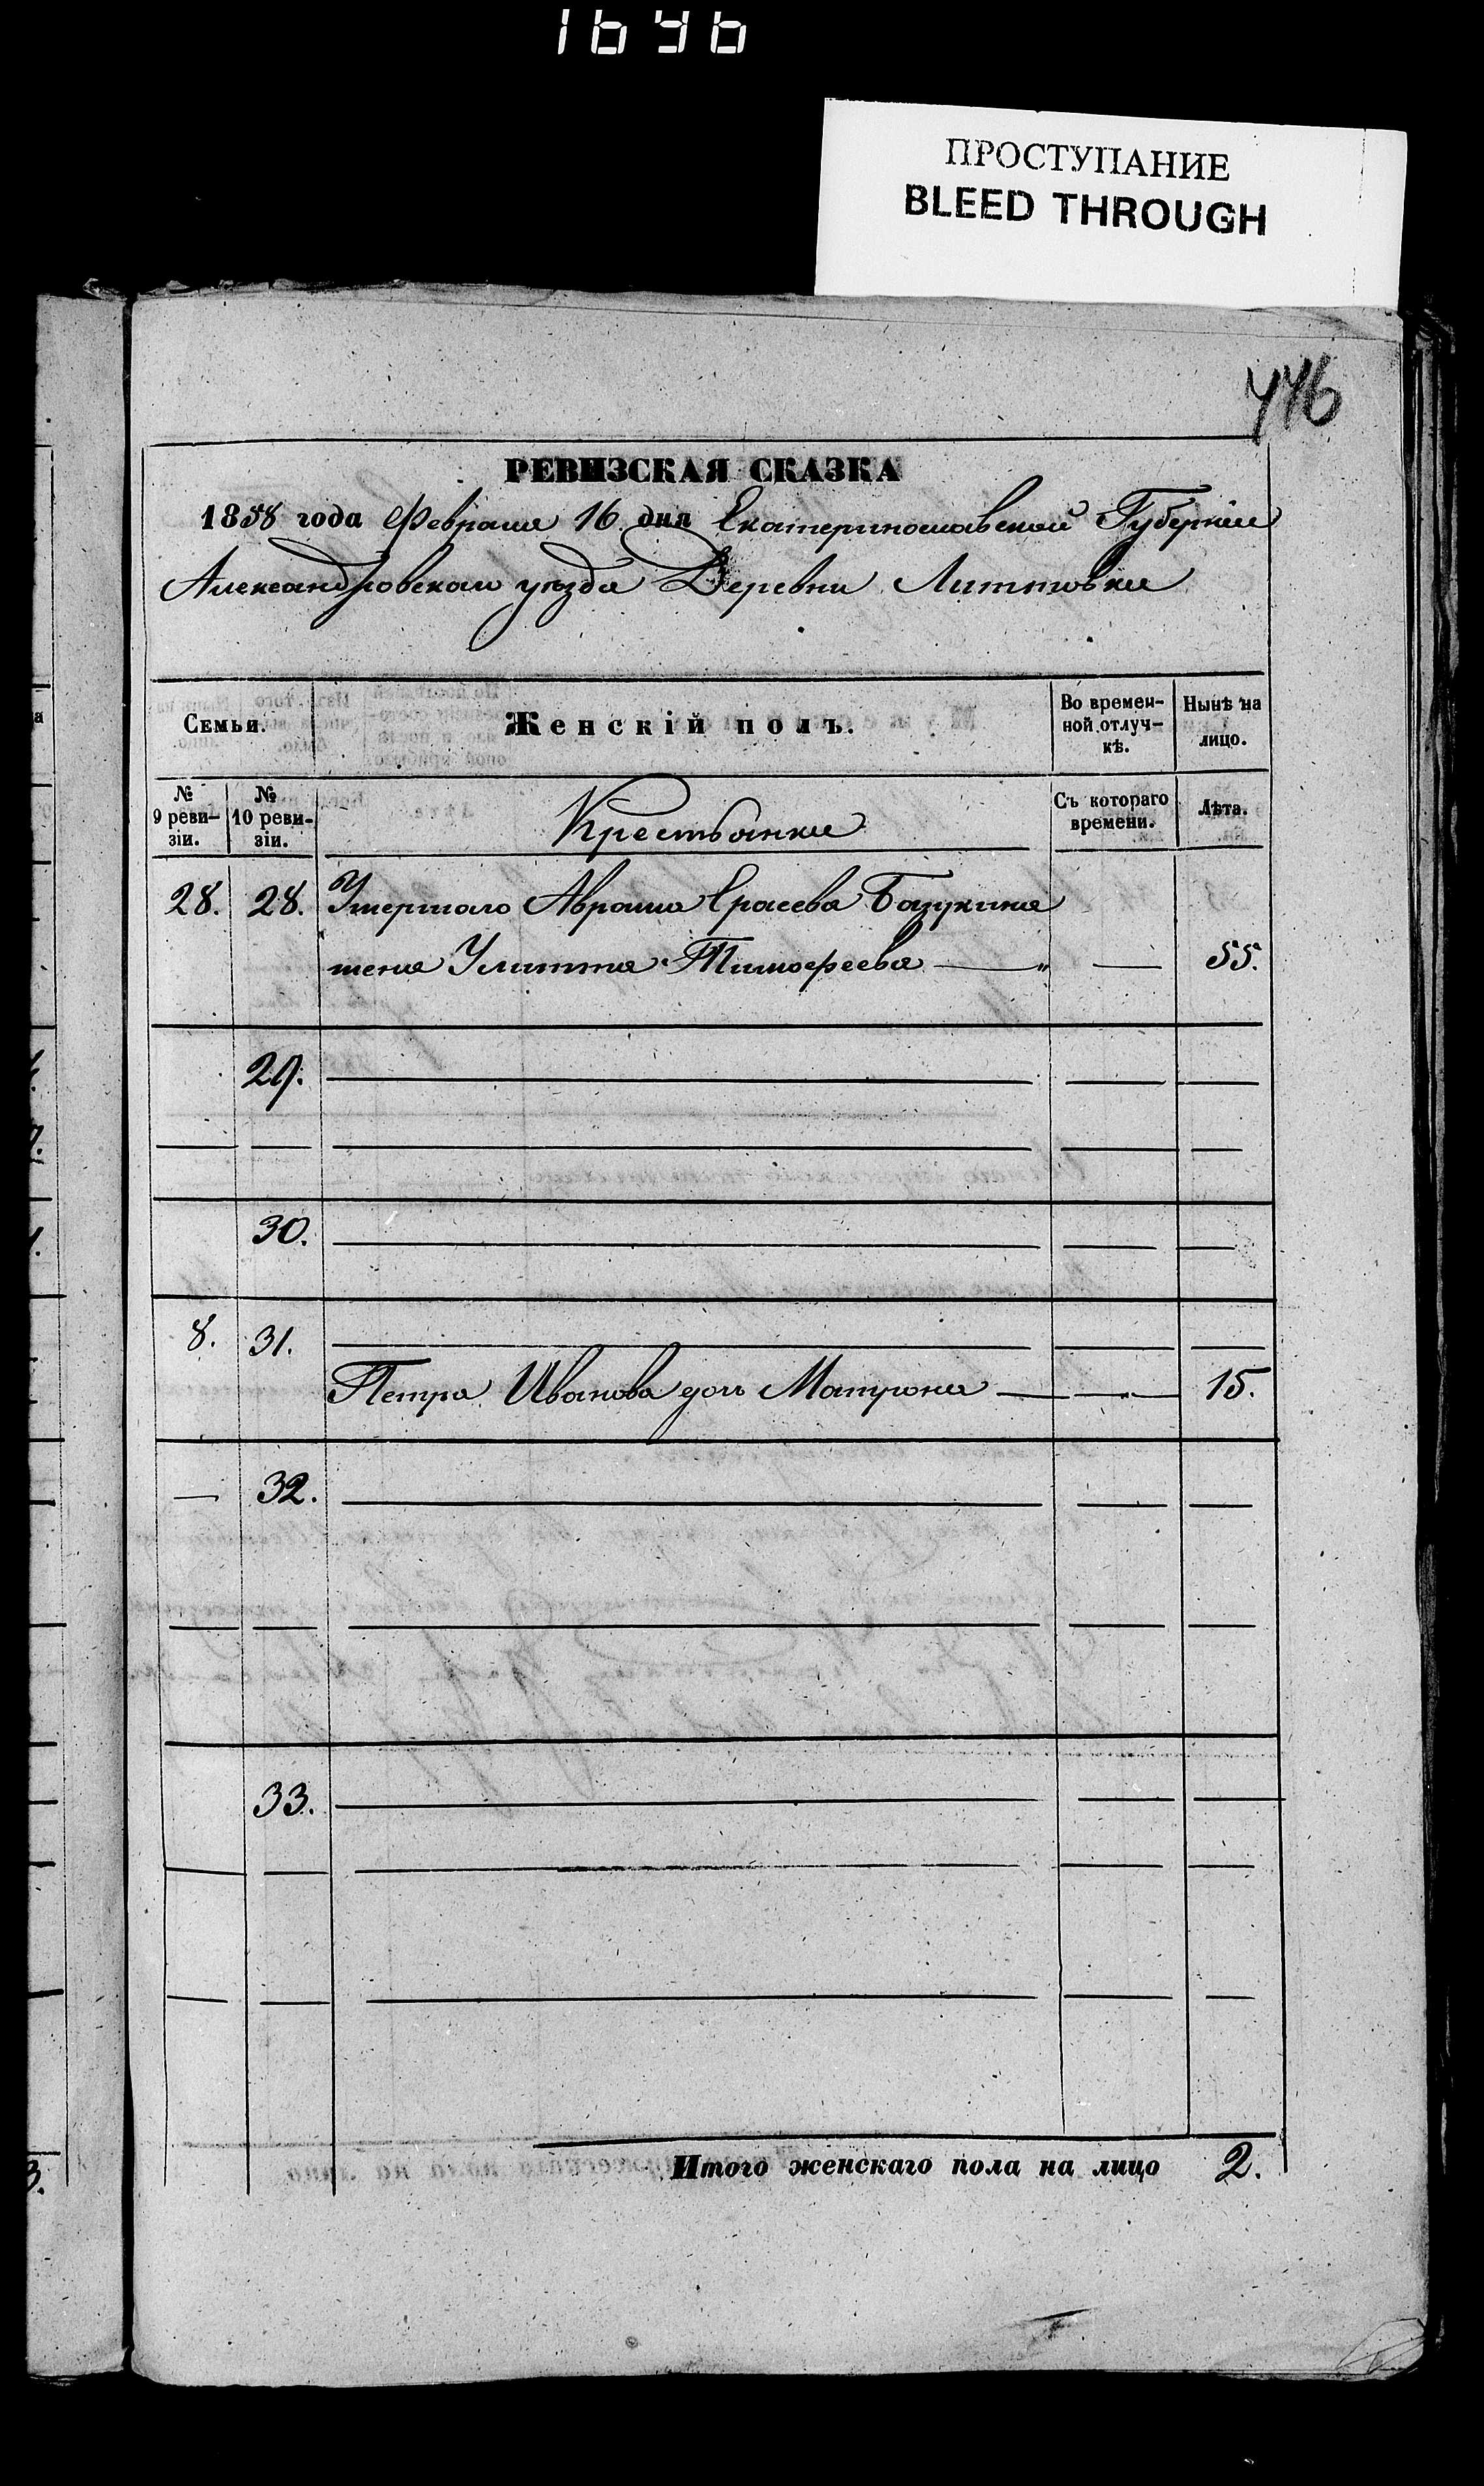 1646
ПРОСТУПАНИЕ
BLEED THROUGH
446
РЕВИЗСКАЯ СКАЗКА
1858 года Февраля 16 дня Екатеринославской Губерніи
Александровскаго уѣзда Деревни
Семьи.
Женскій полъ.
Во времен-
ной отлуч-
кѣ.
Нынѣ на
лицо.
№
9 реви-
зіи.
№
10 реви-
зіи.
Крестьянки
Съ котораго
времени.
Лѣта.
28. 28. Умершаго Аврама
жена Улитта Тимофеева — „ — 55.
29.
30.
8. 31.
Петра Иванова дочь Матрона — — 15.
— 32.
33.
Итого женскаго пола на лицо 2.